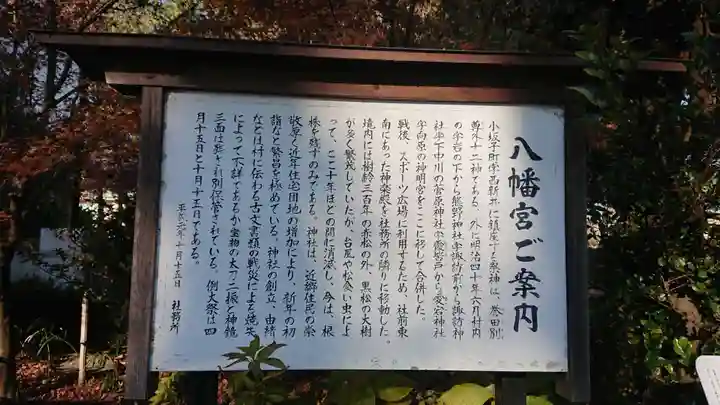 八幡宮ご案内
小坂子町字西新井に鎮座する祭神は、誉田別
尊外十二神である。外に明治四十年六月村内
の字岩の下から熊野神社字諏訪前から諏訪神
社字下中川の菅原神社字愛宕戸から愛宕神社
字向原の神明宮をここに移して合併した。
戦後、スポーツ広場に利用するため、社前東
南にあった神楽殿を社務所の隣りに移動した。
境内には樹齢三百年の赤松の外、黒松の大樹
が多く繁茂していたが、台風や松食い虫によ
って、ここ十年ほどの間に消滅し、今は、根
株を残すのみである。神社は、近郷住民の崇
敬厚く近年住宅団地の増加により、新年の初
詣など繁昌を極めている。神社の創立、由緒
などは村に伝わる古文書類の戦災による焼失
によって不詳であるが宝物の太刀二振と神鏡
三面は難され別保管されている。例大祭は四
月十五日と十月十五日である。
平成元年十月十五日 社務所